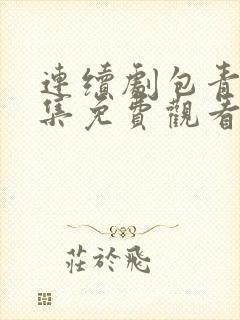 連續劇包青
集免費觀看
莊於飛